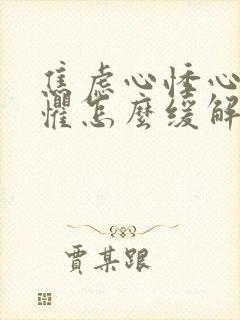 焦虑心悸心
惧怎麽缓解
贾某跟